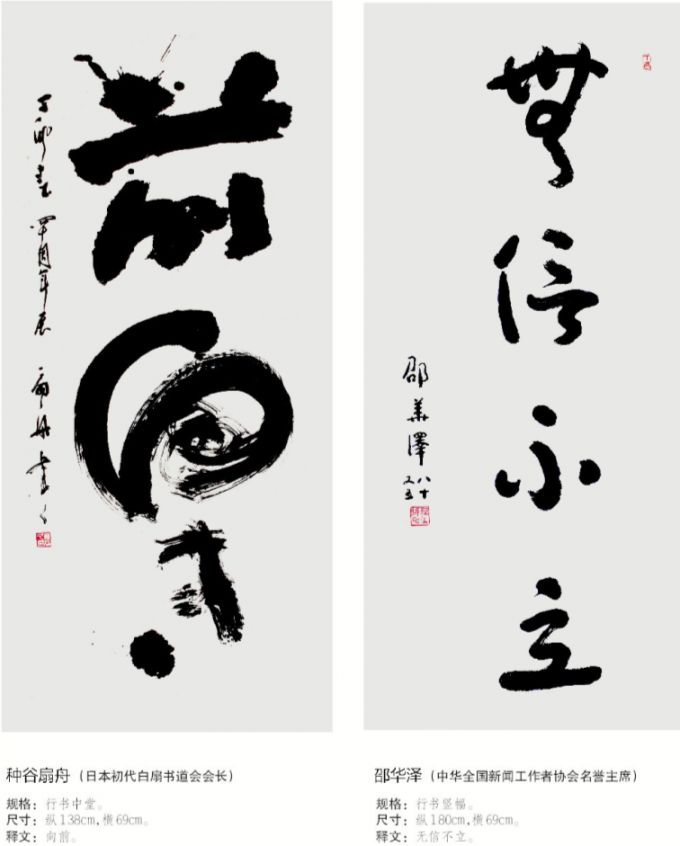 前
無信不立
邵華澤
八十
又五
种谷扇舟(日本初代白扇书道会会长)
规格：行书中堂。
尺寸：纵138cm,横69cm。
释文：向前。
邵华泽(中华全国新闻工作者协会名誉主席)
规格：行书竖幅。
尺寸：纵180cm,横69cm。
释文：无信不立。